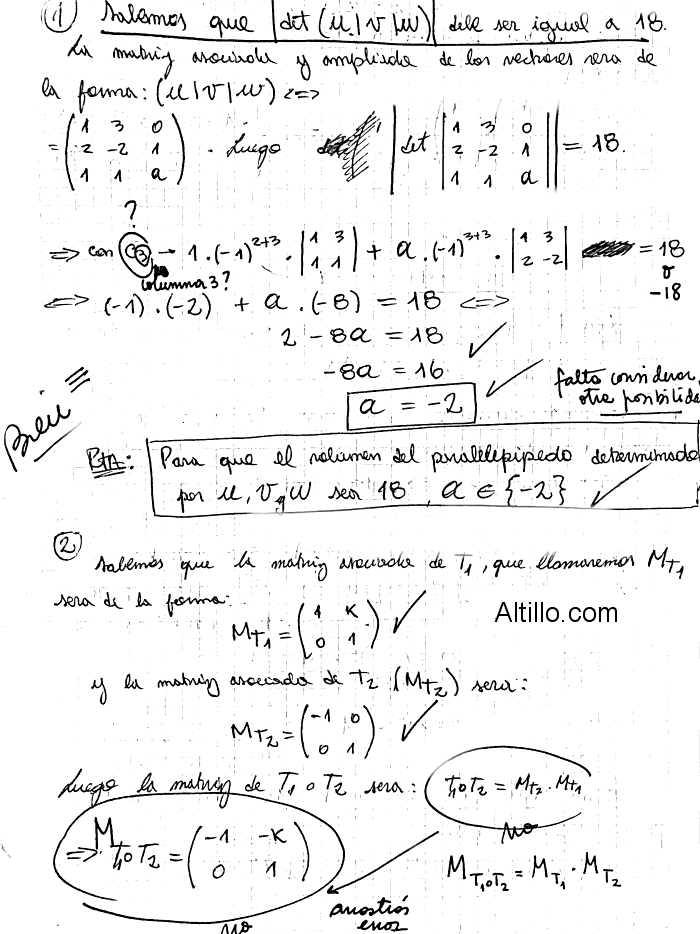 ① Sabemos que |det (u|v|w)| debe ser igual a 18.
La matriz asociada y ampliada de los vectores sera de
la forma: (u|v|w) <=>
= ( 1 3 0
2 -2 1
1 1 a ) . Luego | det | 1 3 0
2 -2 1
1 1 a | | = 18.
?
=> con C3 → 1.(-1)^{2+3} . | 1 3
1 1 | + a.(-1)^{3+3} . | 1 3
2 -2 | = 18
columna 3?
o
-18
<=> (-1).(-2) + a.(-8) = 18 <=>
2 - 8a = 18
-8a = 16
a = -2
falta considerar
otra posibilida
Bien
RTA: Para que el volumen del paralelepipedo determinado
por u, v y w sea 18, a ∈ {-2}
② Sabemos que la matriz asociada de T1, que llamaremos M_{T1}
sera de la forma:
Altillo.com
M_{T1} = ( 1 K
0 1 )
y la matriz asociada de T2 (M_{T2}) sera:
M_{T2} = ( -1 0
0 1 )
Luego la matriz de T1 o T2 sera:
T1oT2 = M_{T2} . M_{T1}
no
=> M_{T1oT2} = ( -1 -K
0 1 )
M_{T1oT2} = M_{T1} . M_{T2}
no
arrastrás
error